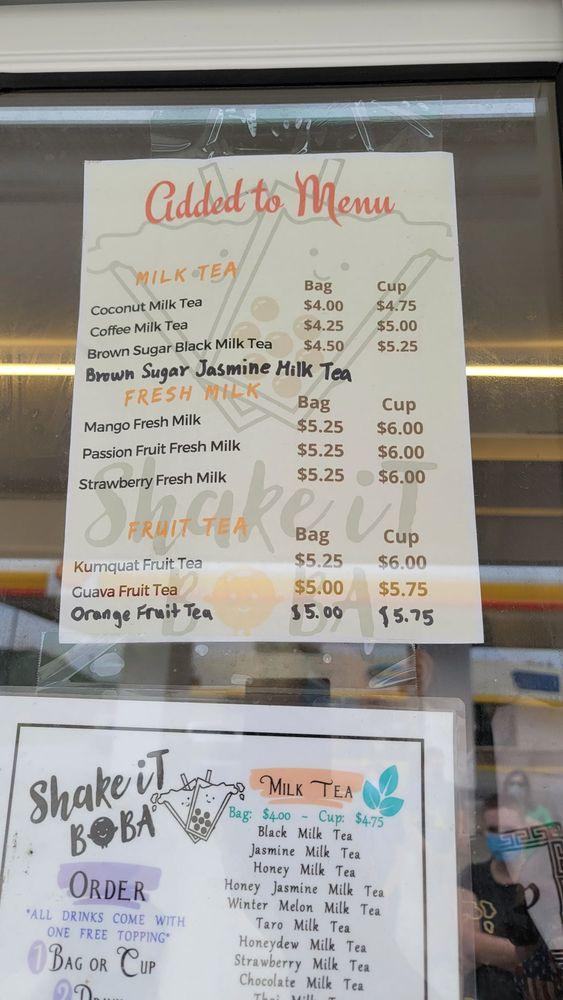 Added to Menu
MILK TEA Bag Cup
Coconut Milk Tea $4.00 $4.75
Coffee Milk Tea $4.25 $5.00
Brown Sugar Black Milk Tea $4.50 $5.25
Brown Sugar Jasmine Milk Tea
FRESH MILK Bag Cup
Mango Fresh Milk $5.25 $6.00
Passion Fruit Fresh Milk $5.25 $6.00
Strawberry Fresh Milk $5.25 $6.00
Shake iT
FRUIT TEA Bag Cup
Kumquat Fruit Tea $5.25 $6.00
Guava Fruit Tea $5.00 $5.75
BOBA
Orange Fruit Tea $5.00 $5.75
Shake iT
BOBA
ORDER
*ALL DRINKS COME WITH
ONE FREE TOPPING*
1 BAG OR CUP
2
MILK TEA
Bag: $4.00 - Cup: $4.75
Black Milk Tea
Jasmine Milk Tea
Honey Milk Tea
Honey Jasmine Milk Tea
Winter Melon Milk Tea
Taro Milk Tea
Honeydew Milk Tea
Strawberry Milk Tea
Chocolate Milk Tea